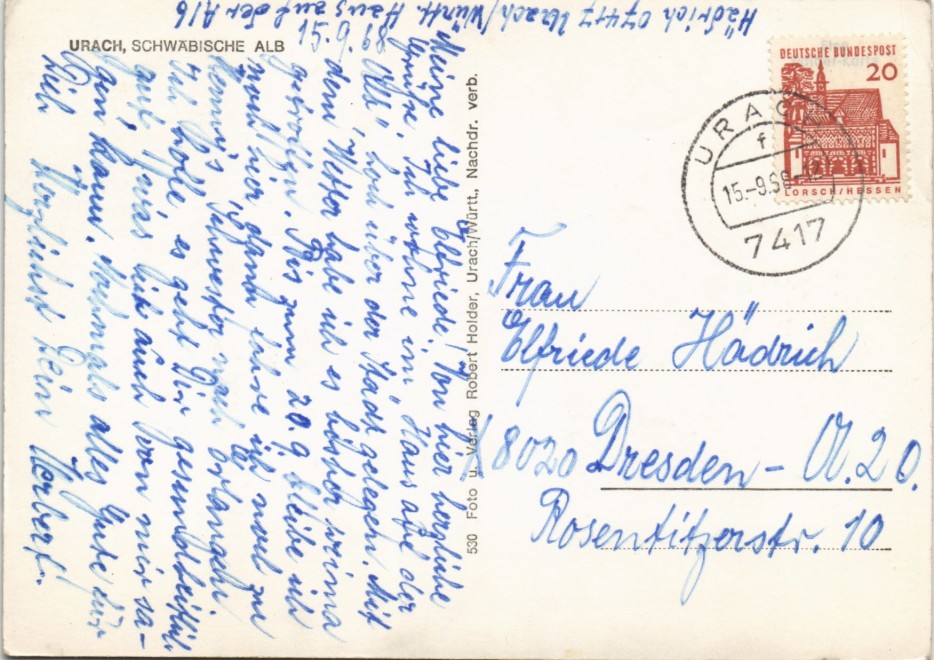 Hädrich 07417 Urach/Württ. Haus auf der Alb
15.9.68
URACH, SCHWÄBISCHE ALB
Meine liebe Elfriede! Von hier herzliche
Grüße. Ich wohne im "Haus auf der
Alb", hoch über der Stadt gelegen. Mit
dem Wetter habe ich es bisher prima
getroffen. Bis zum 20.9. bleibe ich
noch hier dann fahre ich noch zu
Schwester nach Erlangen.
Ich hoffe, es geht Dir gesundheitlich
gut, was ich auch von mir sa-
gen kann. Nochmals alles Gute für
Dich Herzlichst Dein Herbert.
530 Foto u. Verlag Robert Holder, Urach/Württ., Nachdr. verb.
DEUTSCHE BUNDESPOST
20
LORSCH/HESSEN
URACH
f
15.-9.68
7417
Frau
Elfriede Hädrich
X 8020 Dresden - A. 20.
Rosentitzerstr. 10